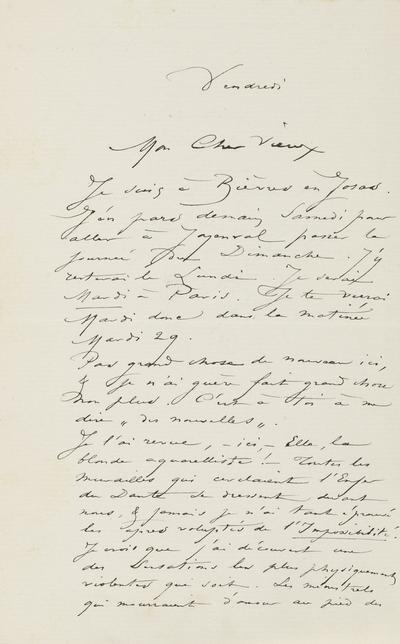 Vendredi
Mon Cher Vieux
Je suis à Bièvres en Josas.
J'en pars demain Samedi pour
aller à passer la
journée du Dimanche. J'y
resterai le Lundi. Je serai
Mardi à Paris. Je te verrai
Mardi donc dans la matinée
Mardi 29.
Pas grand chose de nouveau ici,
& je n'ai guère fait grand chose
non plus. C'est à toi à me
dire „ des nouvelles „.
Je l'ai revue, – ici, – Elle, la
blonde aquarelliste! – Toutes les
murailles qui cerclaient l'Enfer
du Dante se dressent devant
nous, & jamais je n'ai tant éprouvé
les âpres voluptés de l'Impossibilité!
Je crois que j'ai découvert une
des Sensations les plus physiquement
violentes qui soit. Les ménestrels
qui mouraient d'amour au pied des